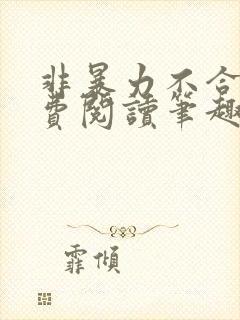 非暴力不合
費閱讀筆趣
霏傾